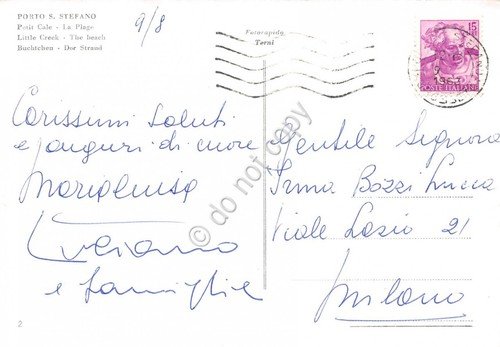 PORTO S. STEFANO
Petit Cale - La Plage
Little Creek - The beach
Buchtchen - Der Strand
9/8
Fotorapida
Terni
15
POSTE ITALIANE
1963
Carissimi saluti
e auguri di cuore
Marialuisa
Luciano
e famiglie
Gentile Signora
Irma Bozzi Lucca
Viale Lazio 21
Milano
2
do not copy